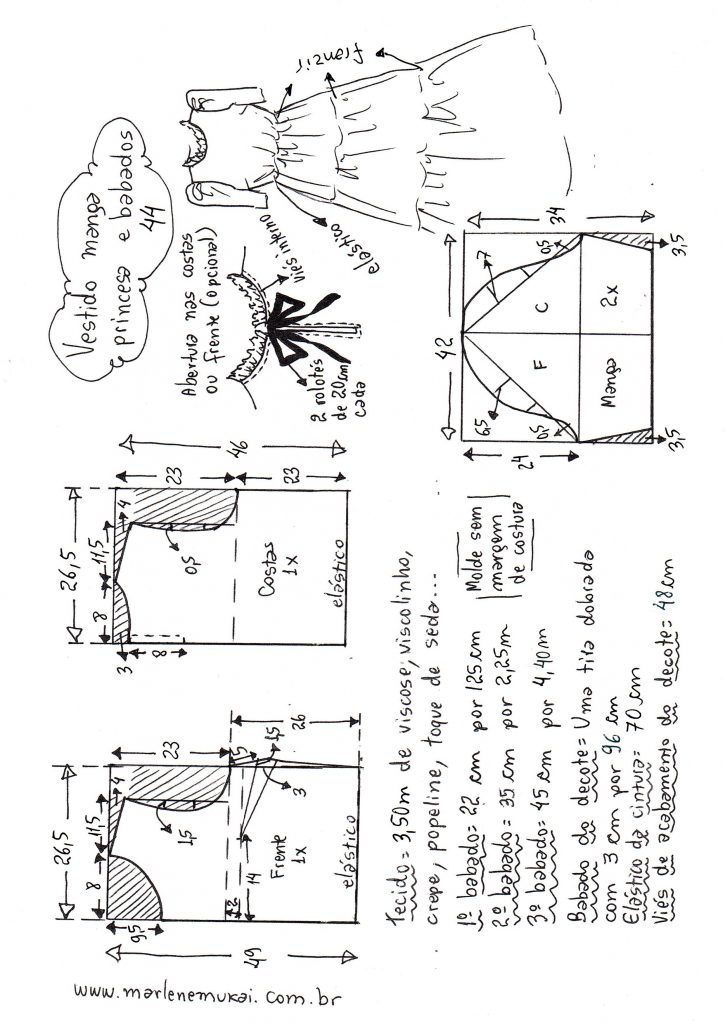 Vestido manga
princesa e babados
44
franzir
elástico
viés interno
Abertura nas costas
ou frente (opcional)
2 rolotês
de 20cm
cada
26,5
8
11,5
4
3
8
0,5
23
23
46
Costas
1x
elástico
26,5
8
11,5
4
9,5
1,5
23
5
1,5
3
26
14
12
49
Frente
1x
elástico
42
7
6,5
0,5
0,5
F
C
24
34
Manga
2x
3,5
3,5
Tecido = 3,50m de viscose, viscolinho,
crepe, popeline, toque de seda...
1º babado= 22 cm por 125cm
2º babado = 35 cm por 2,25m
3º babado= 45 cm por 4,40m
Molde sem
margem
de costura
Babado do decote= Uma tira dobrada
com 3 cm por 96 cm
Elástico da cintura= 70 cm
Viés de acabamento do decote= 48cm
www.marlenemukai.com.br